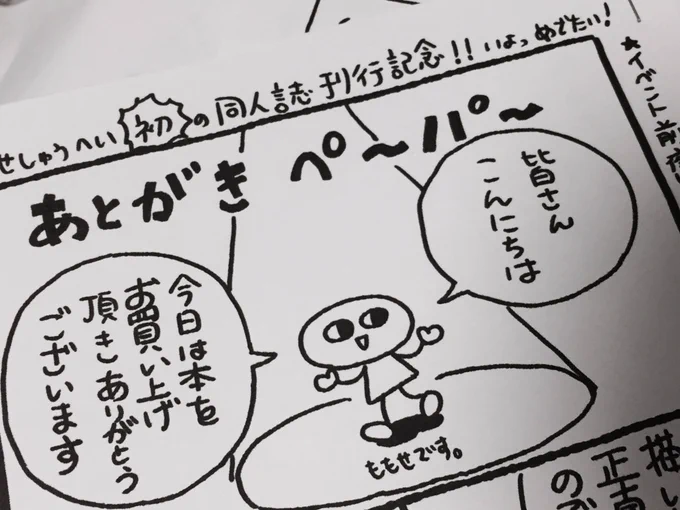 せしゅうへい初の同人誌刊行記念!!いよっめでたい!
あとがきペ〜パ〜
皆さん
こんにちは
今日は本を
お買い上げ
頂きありがとう
ございます
ももせです。
★イベント前夜
描い
正直
の